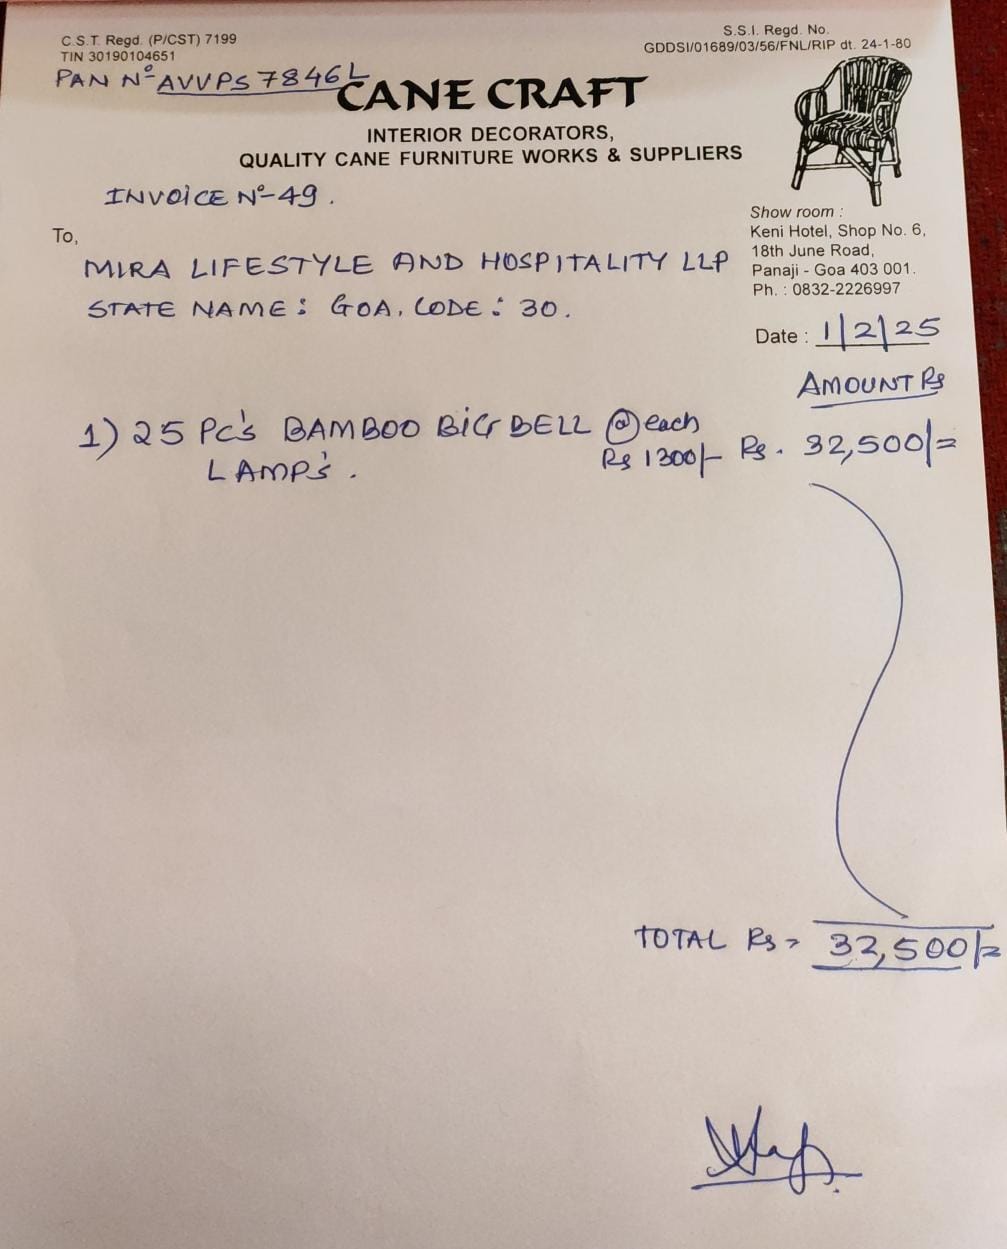 C.S.T. Regd. (P/CST) 7199
TIN 30190104651
S.S.I. Regd. No.
GDDSI/01689/03/56/FNL/RIP dt. 24-1-80
PAN Nº AVVPS 7846L
CANE CRAFT
INTERIOR DECORATORS,
QUALITY CANE FURNITURE WORKS & SUPPLIERS
INVOICE Nº-49.
Show room :
Keni Hotel, Shop No. 6,
18th June Road,
Panaji - Goa 403 001.
Ph. : 0832-2226997
To,
MIRA LIFESTYLE AND HOSPITALITY LLP
STATE NAME: GOA, CODE: 30.
Date : 1/2/25
AMOUNT Rs
1) 25 Pc's BAMBOO BIG BELL @ each
LAMP's. Rs 1300/- Rs. 32,500/=
TOTAL Rs = 32,500/=